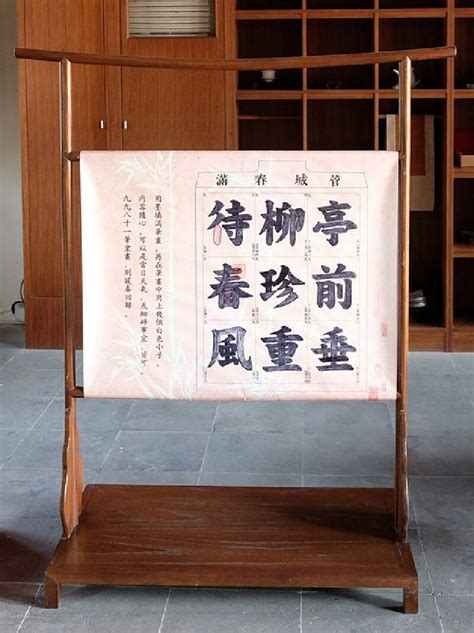 管城春滿
亭前垂
柳珍重
待春風
用墨填滿筆畫,再在筆畫中寫上幾個白色小字,
內容隨心,可以是當日天氣,或細碎事宜,皆可。
九九八十一筆畫,則暖春回歸。